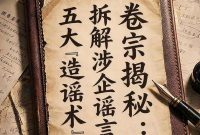 卷宗揭秘：
拆解涉企谣言
五大『造谣术』